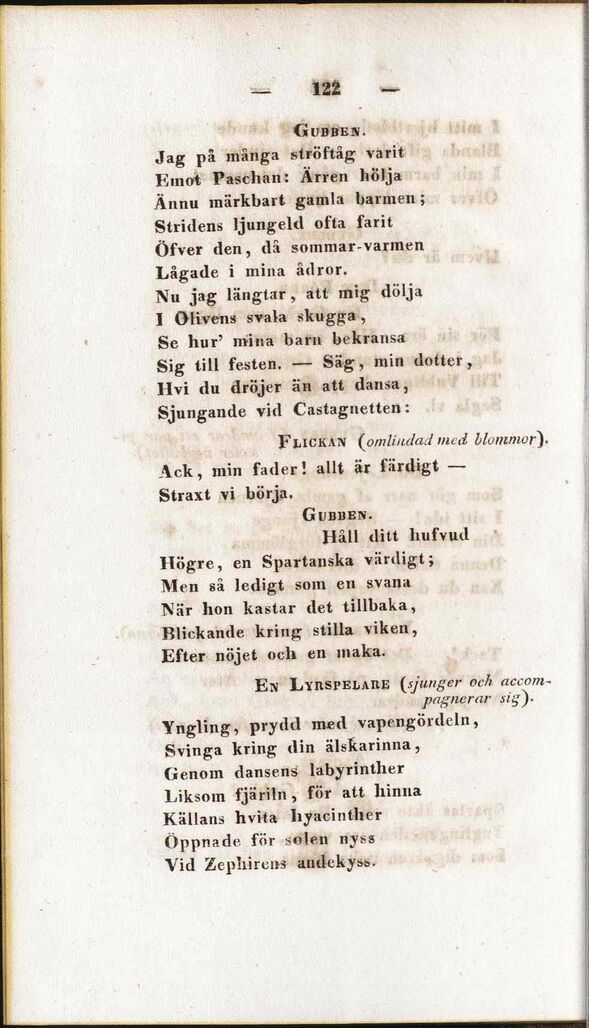 — 122 —
GUBBEN.
Jag på många ströftåg varit
Emot Paschan: Ärren hölja
Ännu märkbart gamla barmen;
Stridens ljungeld ofta farit
Öfver den, då sommar-varmen
Lågade i mina ådror.
Nu jag längtar, att mig dölja
I Olivens svala skugga,
Se hur' mina barn bekransa
Sig till festen. — Säg, min dotter,
Hvi du dröjer än att dansa,
Sjungande vid Castagnetten:
FLICKAN (omlindad med blommor).
Ack, min fader! allt är färdigt —
Straxt vi börja.
GUBBEN.
Håll ditt hufvud
Högre, en Spartanska värdigt;
Men så ledigt som en svana
När hon kastar det tillbaka,
Blickande kring stilla viken,
Efter nöjet och en maka.
EN LYRSPELARE (sjunger och accom-
pagnerar sig).
Yngling, prydd med vapengördeln,
Svinga kring din älskarinna,
Genom dansens labyrinther
Liksom fjäriln, för att hinna
Källans hvita hyacinther
Öppnade för solen nyss
Vid Zephirens andekyss.